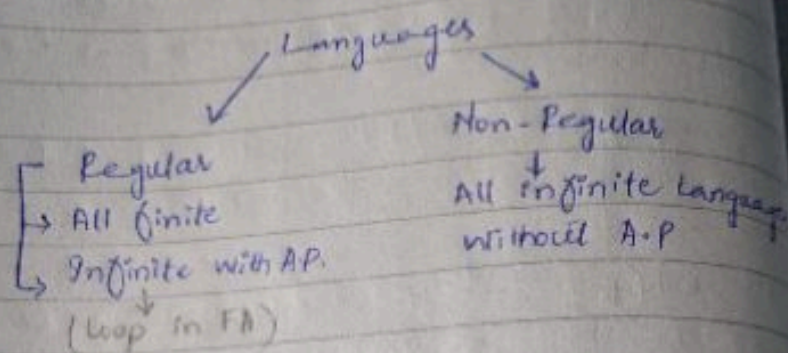 Languages
Regular
All finite
Infinite with A.P.
(Loop in FA)
Non-Regular
All infinite Language
without A.P